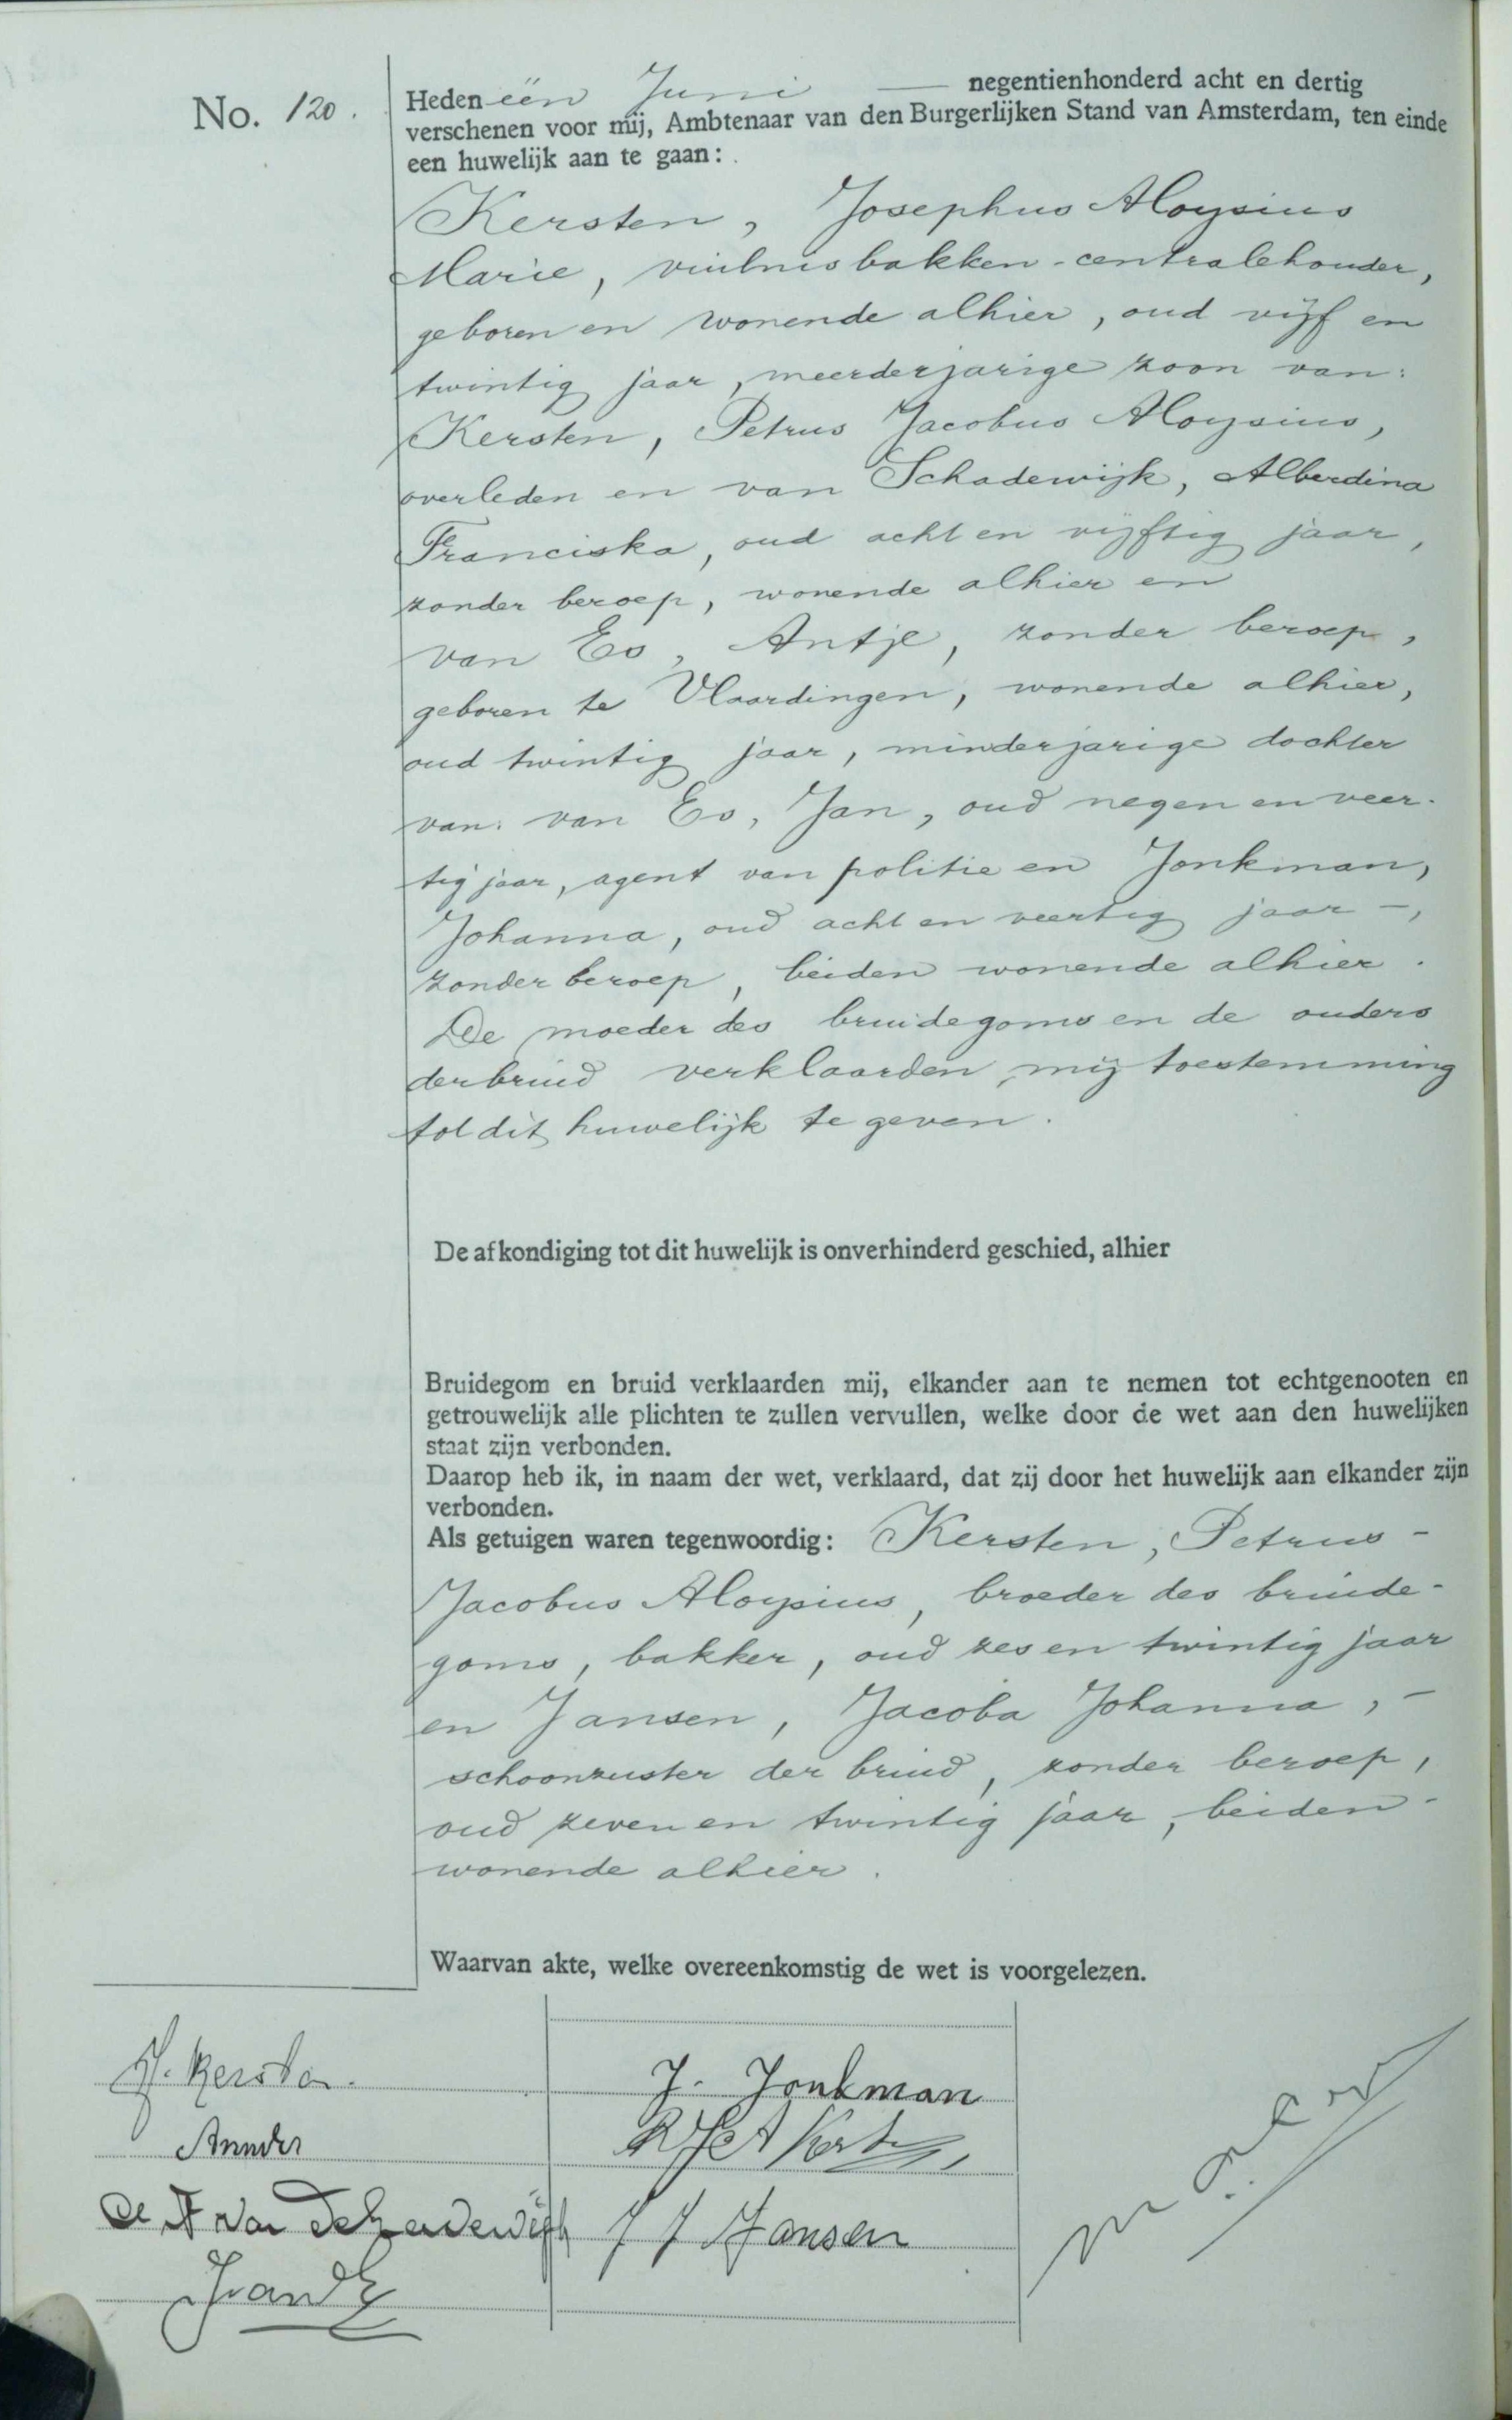 No. 120.
Heden één Juni — negentienhonderd acht en dertig
verschenen voor mij, Ambtenaar van den Burgerlijken Stand van Amsterdam, ten einde
een huwelijk aan te gaan:
Kersten, Josephus Aloysius
Marie, vuilnisbakken-centralehouder,
geboren en wonende alhier, oud vijf en
twintig jaar, meerderjarige zoon van:
Kersten, Petrus Jacobus Aloysius,
overleden en van Schadewijk, Alberdina
Franciska, oud acht en vijftig jaar,
zonder beroep, wonende alhier en
van Es, Antje, zonder beroep,
geboren te Vlaardingen, wonende alhier,
oud twintig jaar, minderjarige dochter
van: van Es, Jan, oud negen en veer-
tig jaar, agent van politie en Jonkman,
Johanna, oud acht en veertig jaar —,
zonder beroep, beiden wonende alhier.
De moeder des bruidegoms en de ouders
der bruid verklaarden mij toestemming
tot dit huwelijk te geven.
De afkondiging tot dit huwelijk is onverhinderd geschied, alhier
Bruidegom en bruid verklaarden mij, elkander aan te nemen tot echtgenooten en
getrouwelijk alle plichten te zullen vervullen, welke door de wet aan den huwelijken
staat zijn verbonden.
Daarop heb ik, in naam der wet, verklaard, dat zij door het huwelijk aan elkander zijn
verbonden.
Als getuigen waren tegenwoordig: Kersten, Petrus -
Jacobus Aloysius, broeder des bruide-
goms, bakker, oud zes en twintig jaar
en Jansen, Jacoba Johanna, -
schoonzuster der bruid, zonder beroep,
oud zeven en twintig jaar, beiden -
wonende alhier.
Waarvan akte, welke overeenkomstig de wet is voorgelezen.
J. Kersten.
A v Schadewijk
J. Jonkman
J J Jansen
J van Es